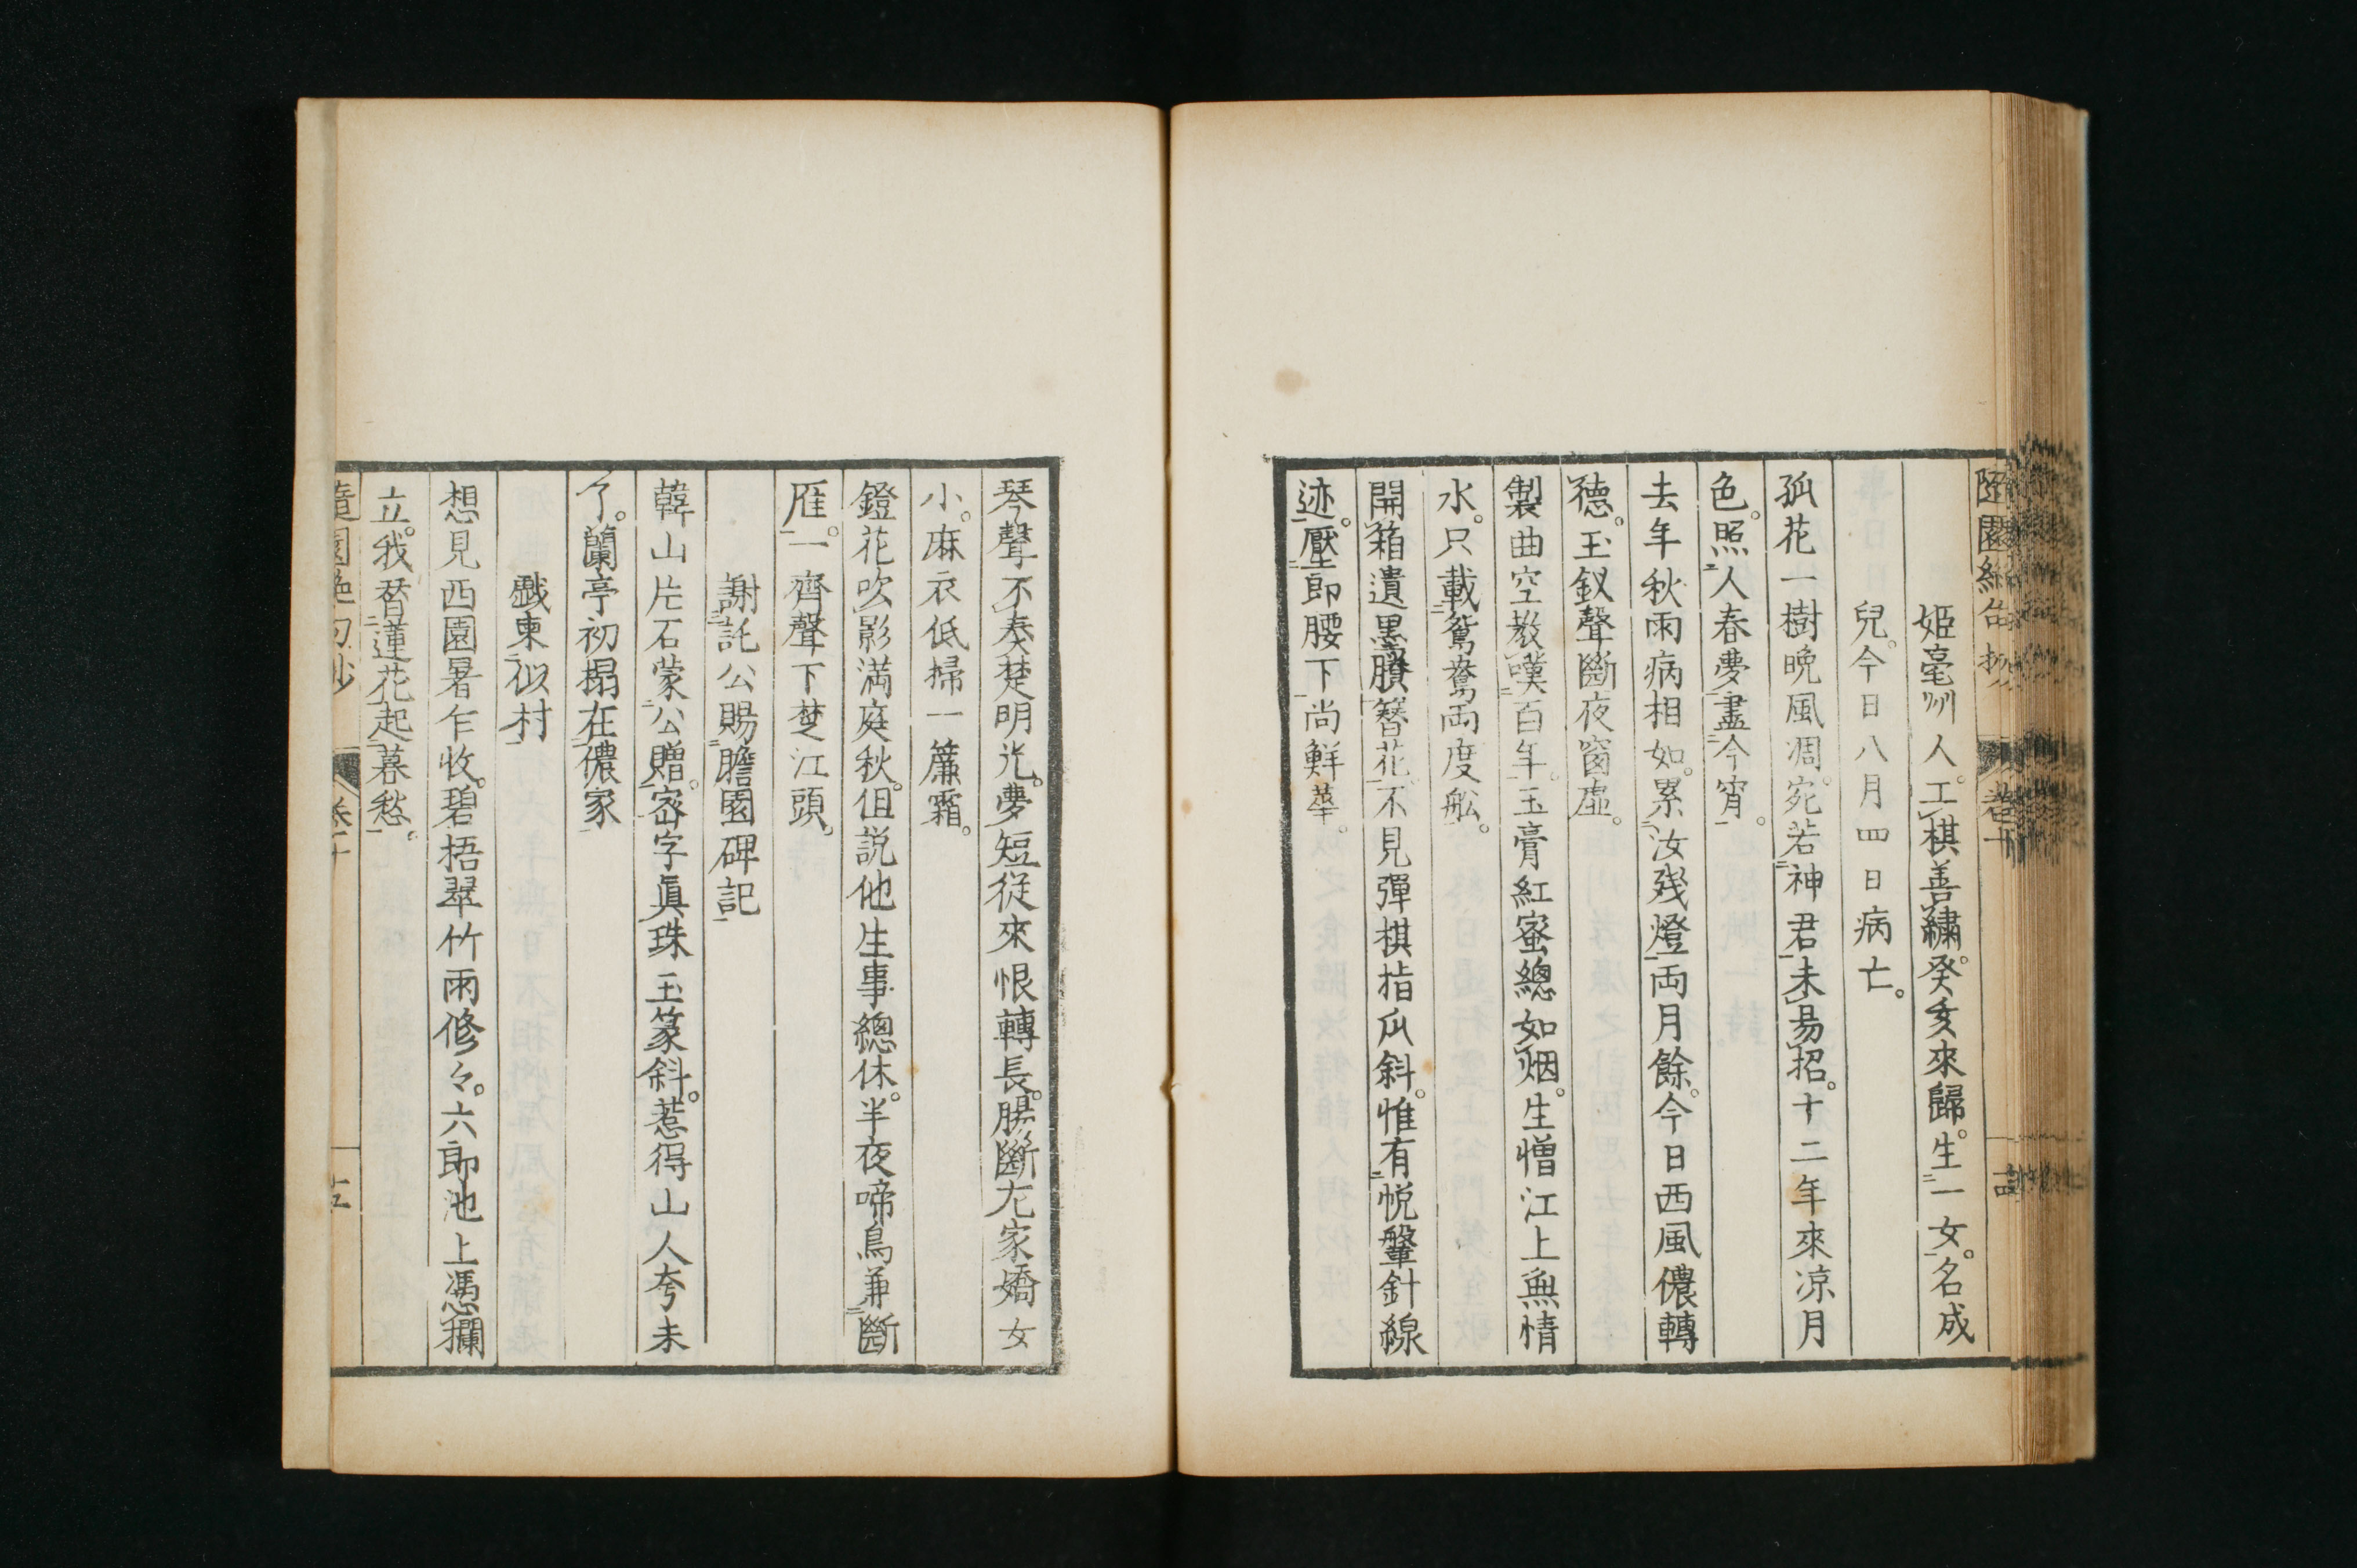 隨園絕句抄 卷十
姬亳州人。工棋善繡。癸亥來歸。生一女。名成
兒。今日八月四日病亡。
孤花一樹晚風凋。宛若神君未易招。十二年來凉月
色。照人春夢盡今宵。
去年秋雨病相如。累汝殘燈兩月餘。今日西風儂轉
德。玉釵聲斷夜窗虛。
製曲空教嘆百年。玉膏紅蜜總如烟。生憎江上無情
水。只載鴛鴦兩度舩。
開箱遺黑賸簪花。不見彈棋指爪斜。惟有帨鞶針線
迹。壓郎腰下尚鮮華。
琴聲不奏楚明光。夢短從來恨轉長。腸斷左家嬌女
小。麻衣低掃一簾霜。
鐙花吹影満庭秋。但説他生事總休。半夜啼鳥兼斷
雁。一齊聲下楚江頭。
謝託公賜膽園碑記
韓山片石蒙公贈。密字眞珠玉篆斜。惹得山人夸未
了。蘭亭初搨在儂家
戱柬似村
想見西園暑乍收。碧梧翠竹雨修々。六郎池上憑欄
立。我替蓮花起暮愁。
隨園絕句抄 卷十 十五